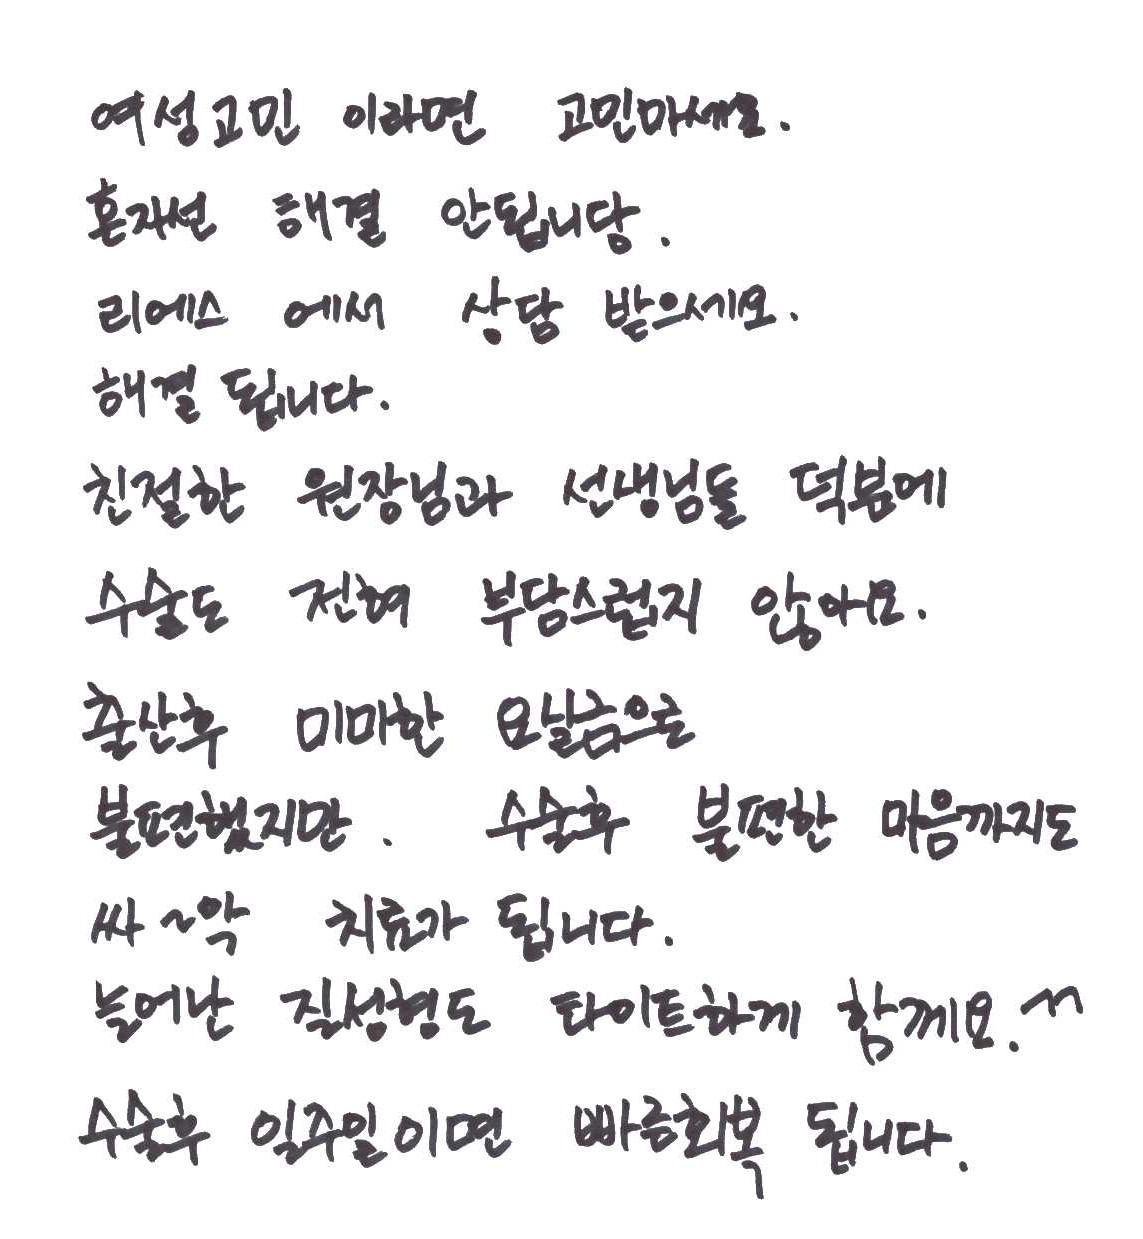 여성고민 이라면 고민마세요.
혼자선 해결 안됩니당.
리에스 에서 상담 받으세요.
해결 됩니다.
친절한 원장님과 선생님들 덕분에
수술도 전혀 부담스럽지 않아요.
출산후 미미한 요실금으로
불편했지만. 수술후 불편한 마음까지도
싸~악 치료가 됩니다.
늘어난 질성형도 타이트하게 함께요.^^
수술후 일주일이면 빠른회복 됩니다.